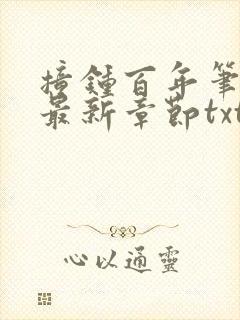 撞鍾百年筆
最新章節txt
心以通靈